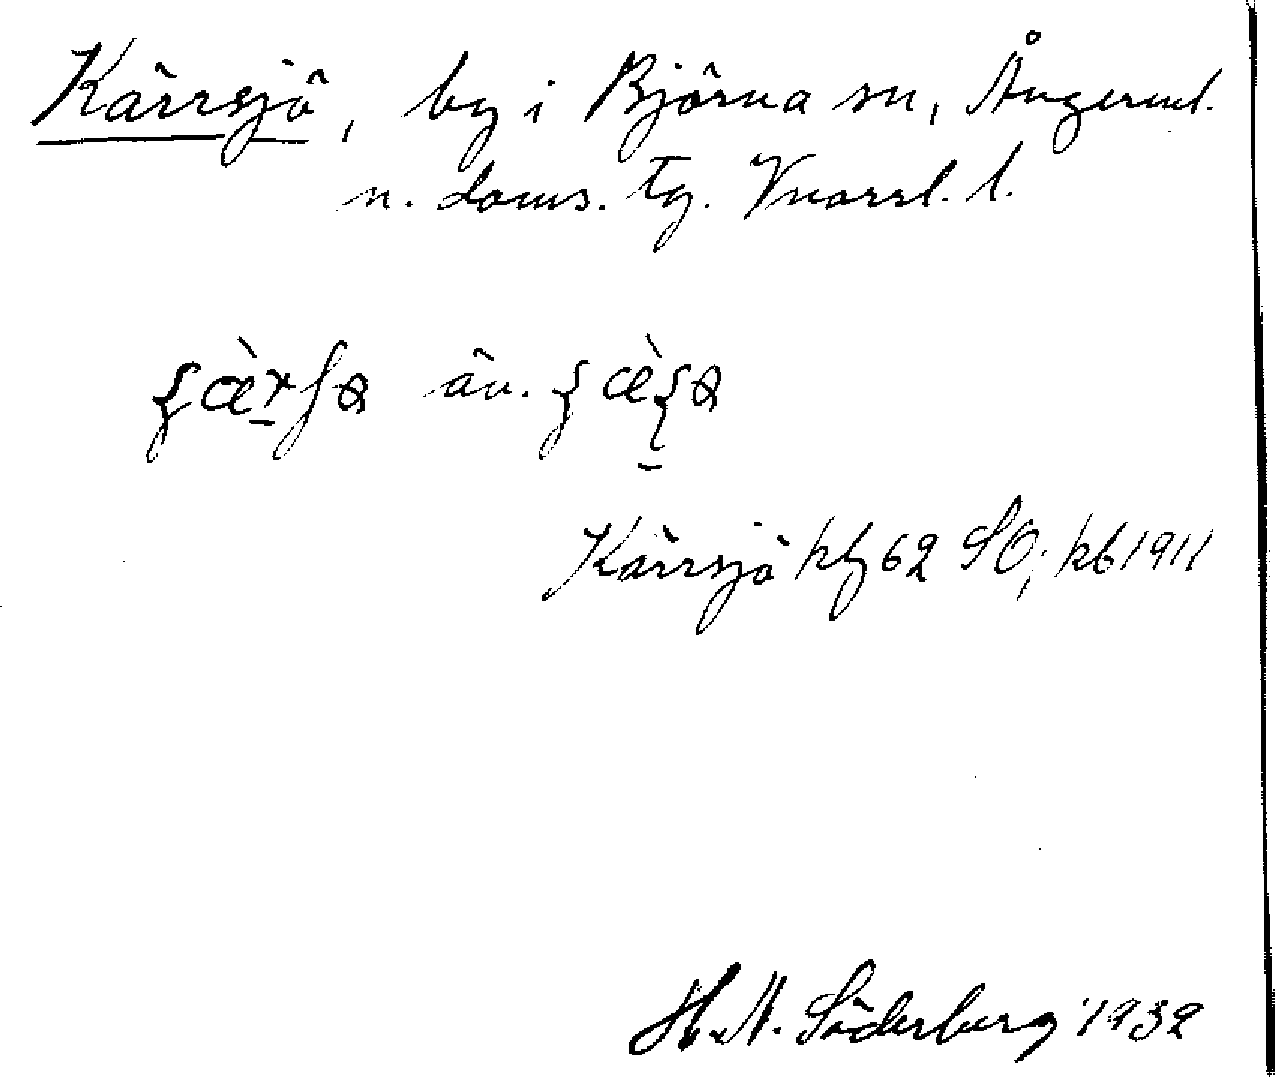 Kärrsjö, by i Björna sn, Ångerml.
n. doms. tg. Vnorrl. l.
äv.
Kärrsjö kbg 62 SO; kb 1911
H. A. Söderberg 1932